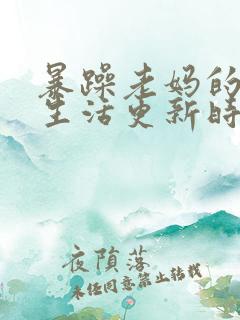 暴躁老妈的
生活更新时
夜陨落
未经同意禁止转载